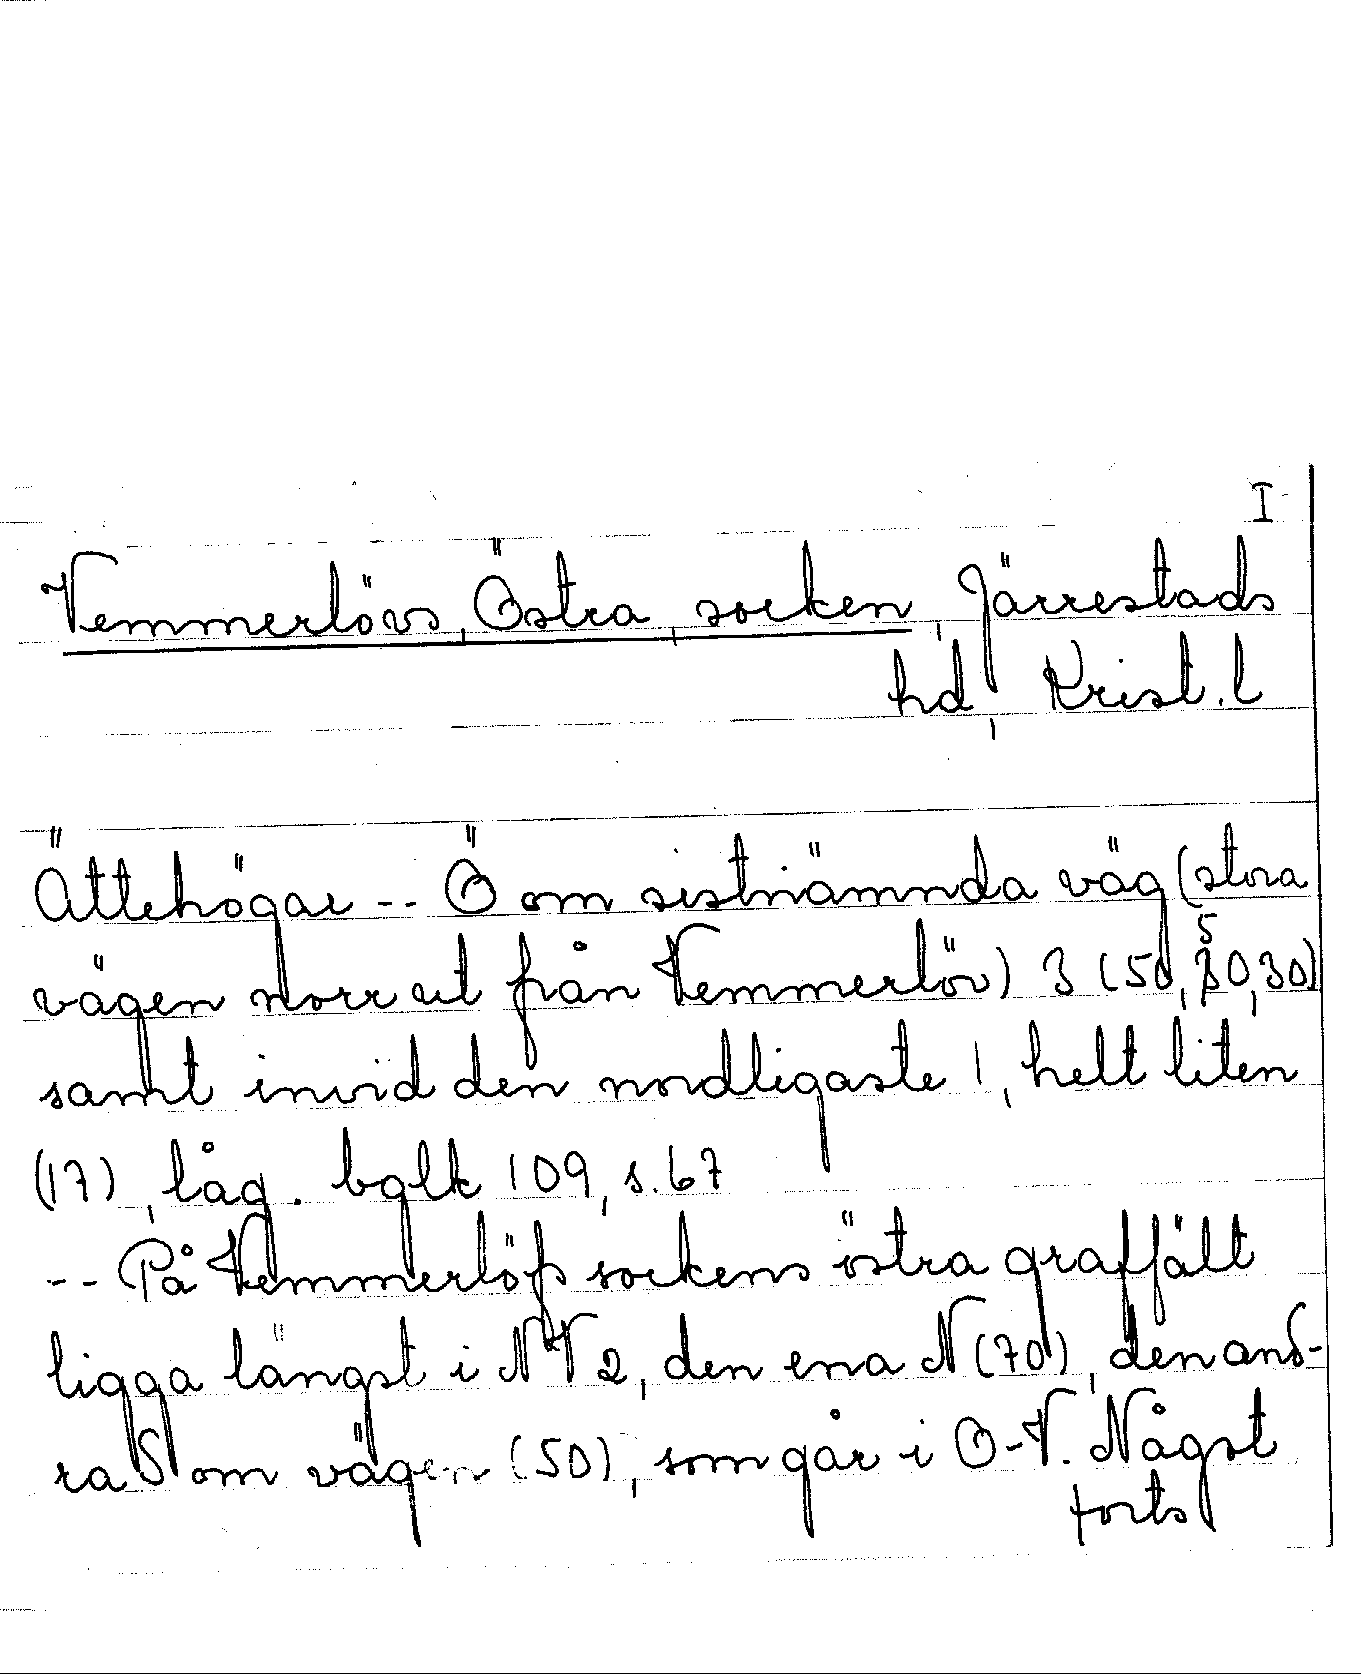 I
Vemmerlövs, Östra, socken, Järrestads
hd, Krist. l
Ättehögar -- Ö om sistnämnda väg (stora
vägen norr ut från Vemmerlöv) 3 (50, 50, 30)
samt invid den nordligaste 1, helt liten
(17), låg. bglk 109, s. 67
-- På Vemmerlöfs sockens östra graffält
ligga längst i NV 2, den ena N (70), den and-
ra S om vägen (50), som går i O-V. Något
forts